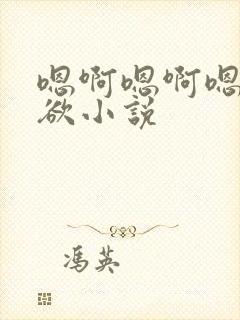 嗯啊嗯啊嗯
欲小説
冯英